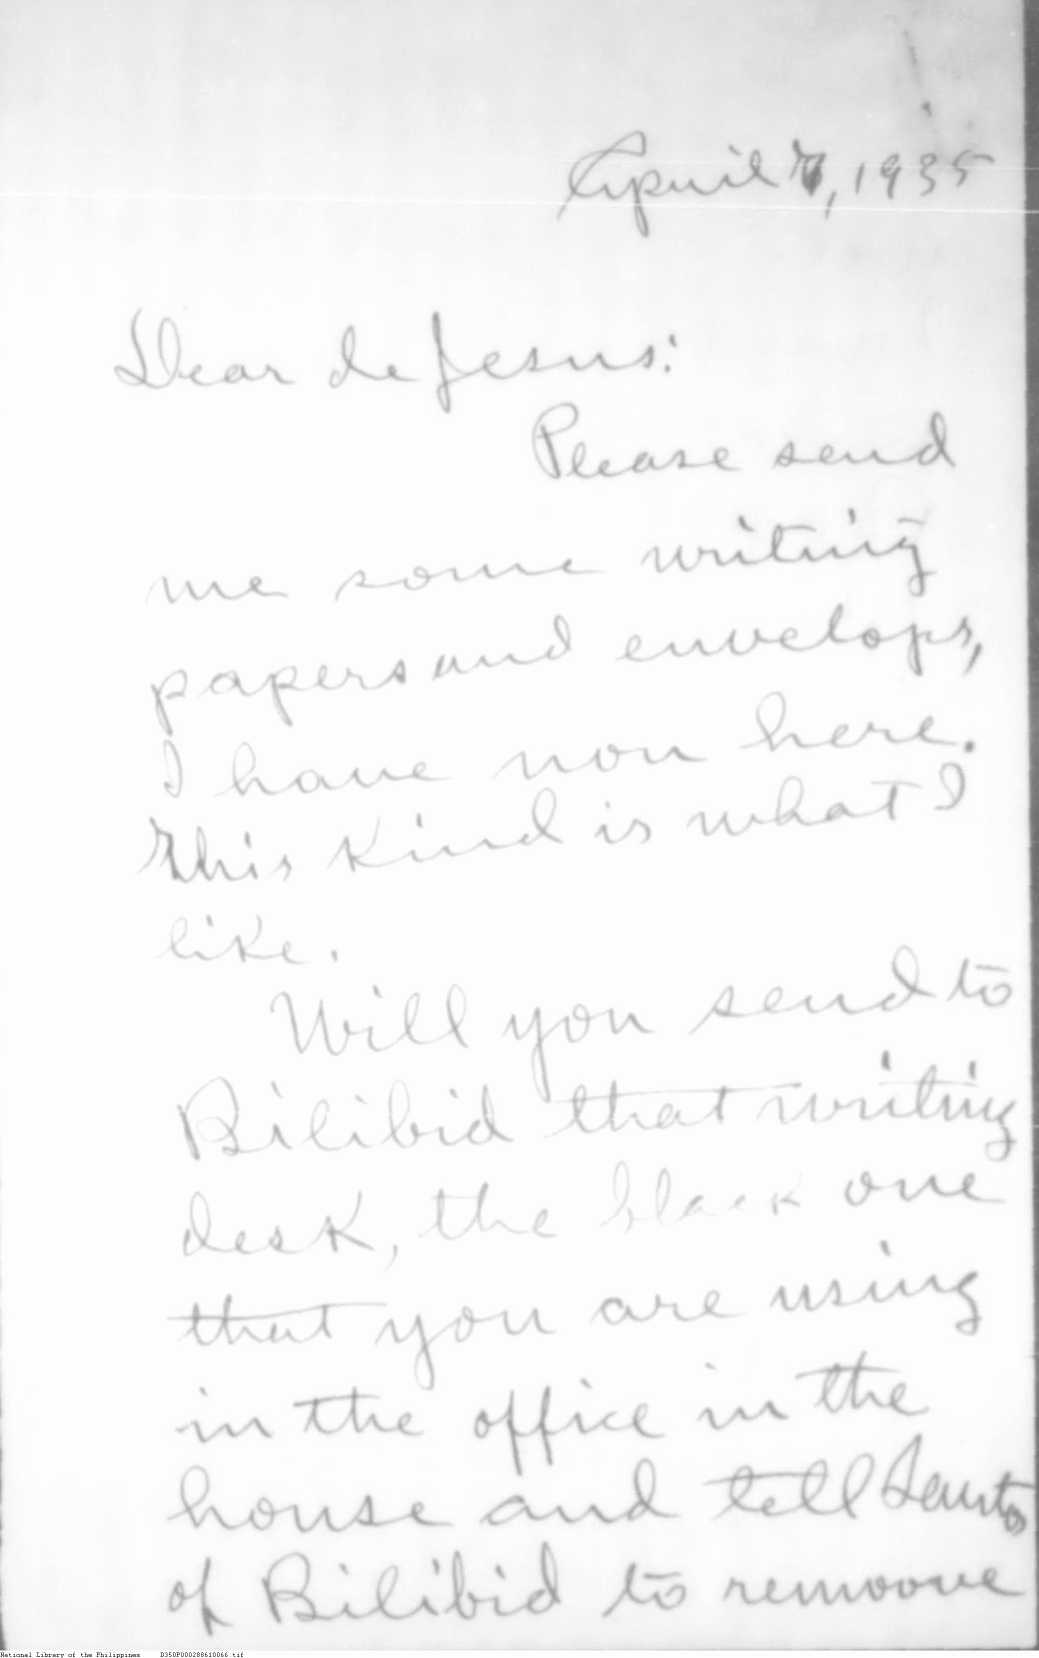 April 7, 1935
Dear de Jesus:
Please send
me some writing
papers and envelops,
I have non here.
This kind is what I
like.
Will you send to
Bilibid that writing
desk, the black one
that you are using
in the office in the
house and tell Santos
of Bilibid to remoove
National Library of the Philippines D350P000288610066.tif